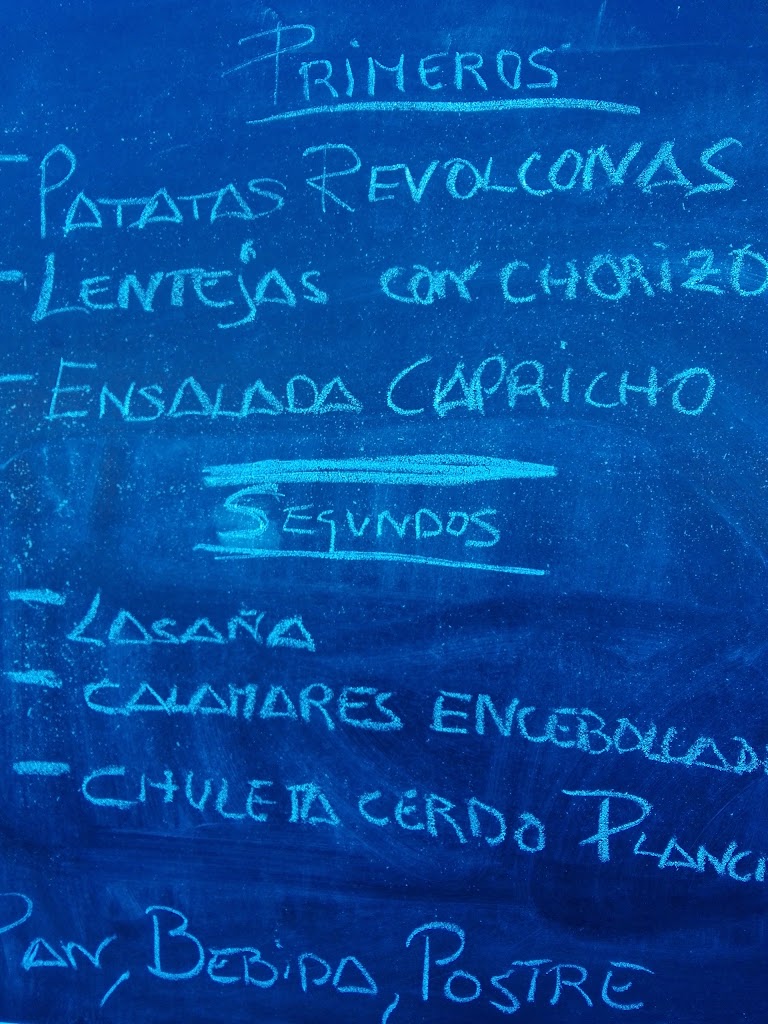 PRIMEROS
- PATATAS REVOLCONAS
- LENTEJAS CON CHORIZO
- ENSALADA CAPRICHO
SEGUNDOS
- LASAÑA
- CALAMARES ENCEBOLLAD
- CHULETA CERDO PLANC
PAN, BEBIDA, POSTRE